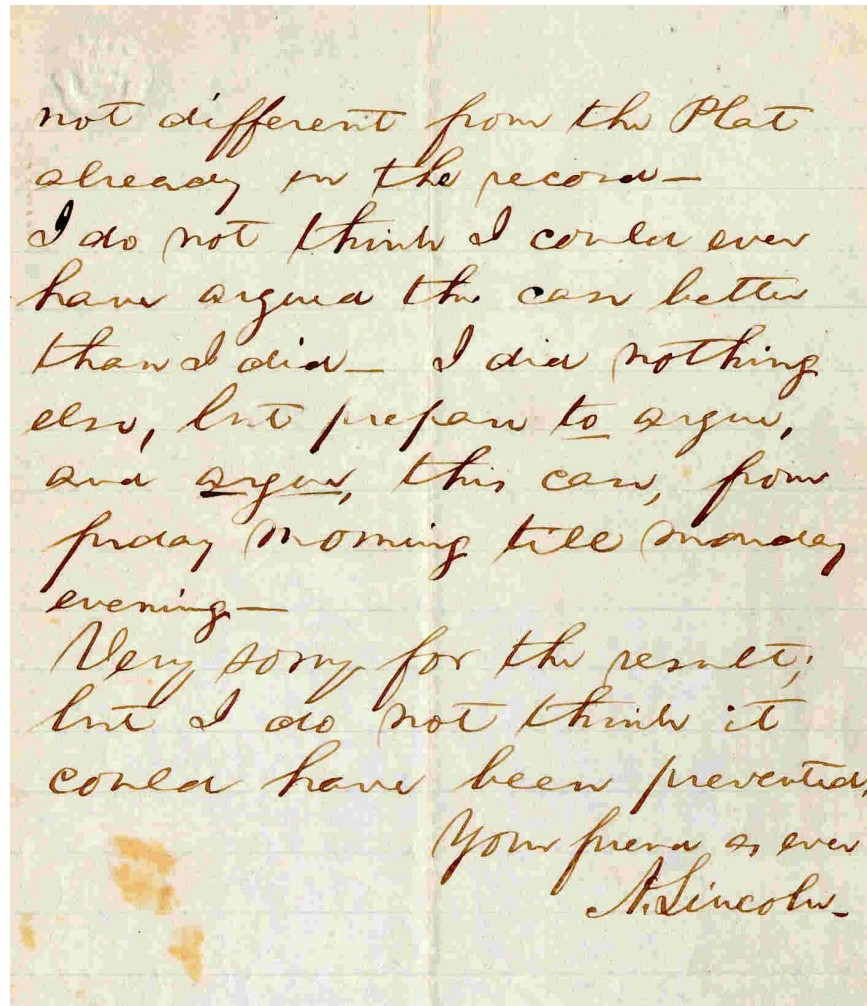 not different from the Plat
already in the record—
I do not think I could ever
have argued the case better
than I did— I did nothing
else, but prepare to argue,
and argue, this case, from
friday morning till monday
evening—
Very sorry for the result;
but I do not think it
could have been prevented.
Your friend as ever
A. Lincoln—